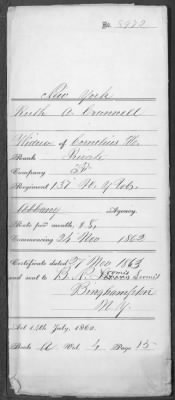 No. 5922
New York
Ruth A. Crannell
Widow of Cornelius H.
Rank Private
Company F
Regiment 157 N.Y. Vols.
Albany Agency.
Rate per month, $8,
Commencing 24 Nov 1862
Certificate dated 27 Nov 1863
and sent to B. R. Loomis
Binghampton
N.Y.
Act 14th July, 1862.
Book A Vol. 4 Page 15